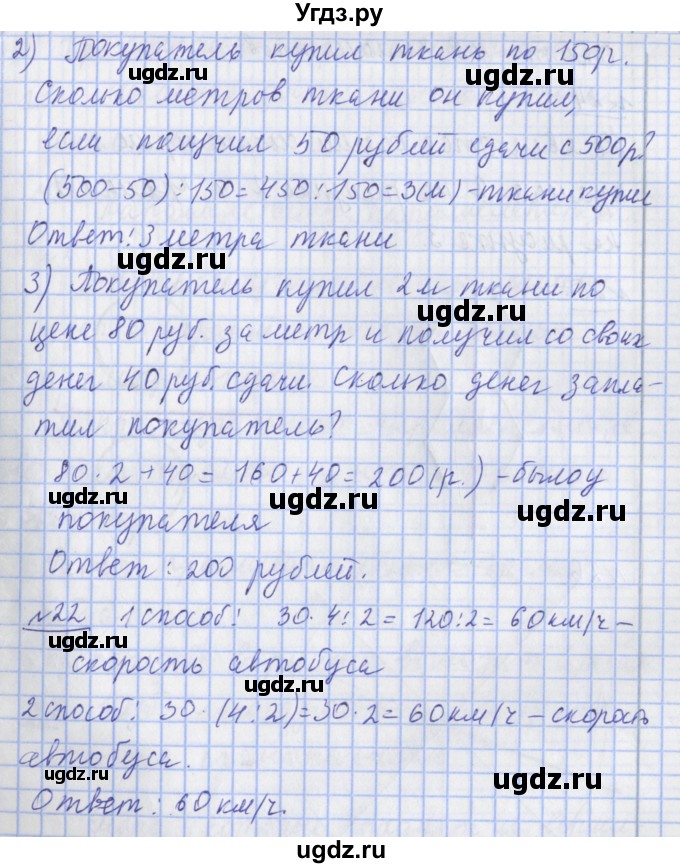 Угдз.ру
2) Покупатель купил ткань по 150р.
Сколько метров ткани он купил,
если получил 50 рублей сдачи с 500р?
(500-50):150=450:150=3(м)-ткани купил
Ответ: 3 метра ткани
3) Покупатель купил 2м ткани по
цене 80 руб. за метр и получил со своих
денег 40 руб. сдачи. Сколько денег запла-
тил покупатель?
80·2+40=160+40=200(р.)-было у
покупателя
Ответ: 200 рублей.
№22 1 способ: 30·4:2=120:2=60км/ч-
скорость автобуса
2 способ: 30·(4:2)=30·2=60км/ч-скорость
автобуса.
Ответ: 60км/ч.
ugdz.ru
ugdz.ru
ugdz.ru
ugdz.ru
ugdz.ru
ugdz.ru
ugdz.ru
ugdz.ru
ugdz.ru
ugdz.ru
ugdz.ru
ugdz.ru
ugdz.ru
ugdz.ru